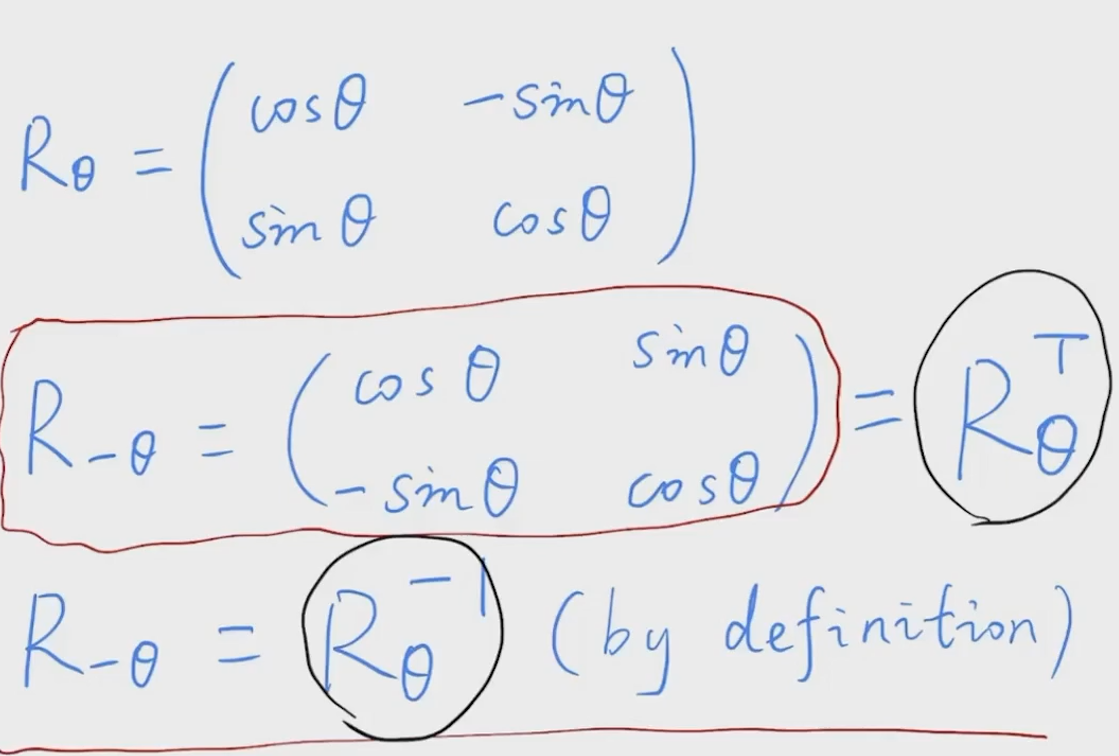 R_θ = ( cosθ  -sinθ
sinθ  cosθ )
R_{-θ} = ( cosθ  sinθ
-sinθ  cosθ ) = R_θ^T
R_{-θ} = R_θ^{-1} (by definition)